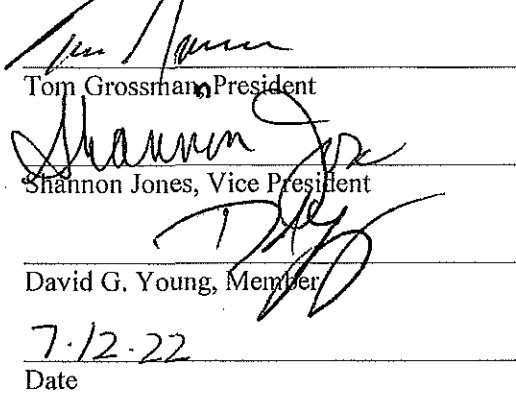 Tom Grossmann, President
Shannon Jones
Shannon Jones, Vice President
David G. Young, Member
7.12.22
Date